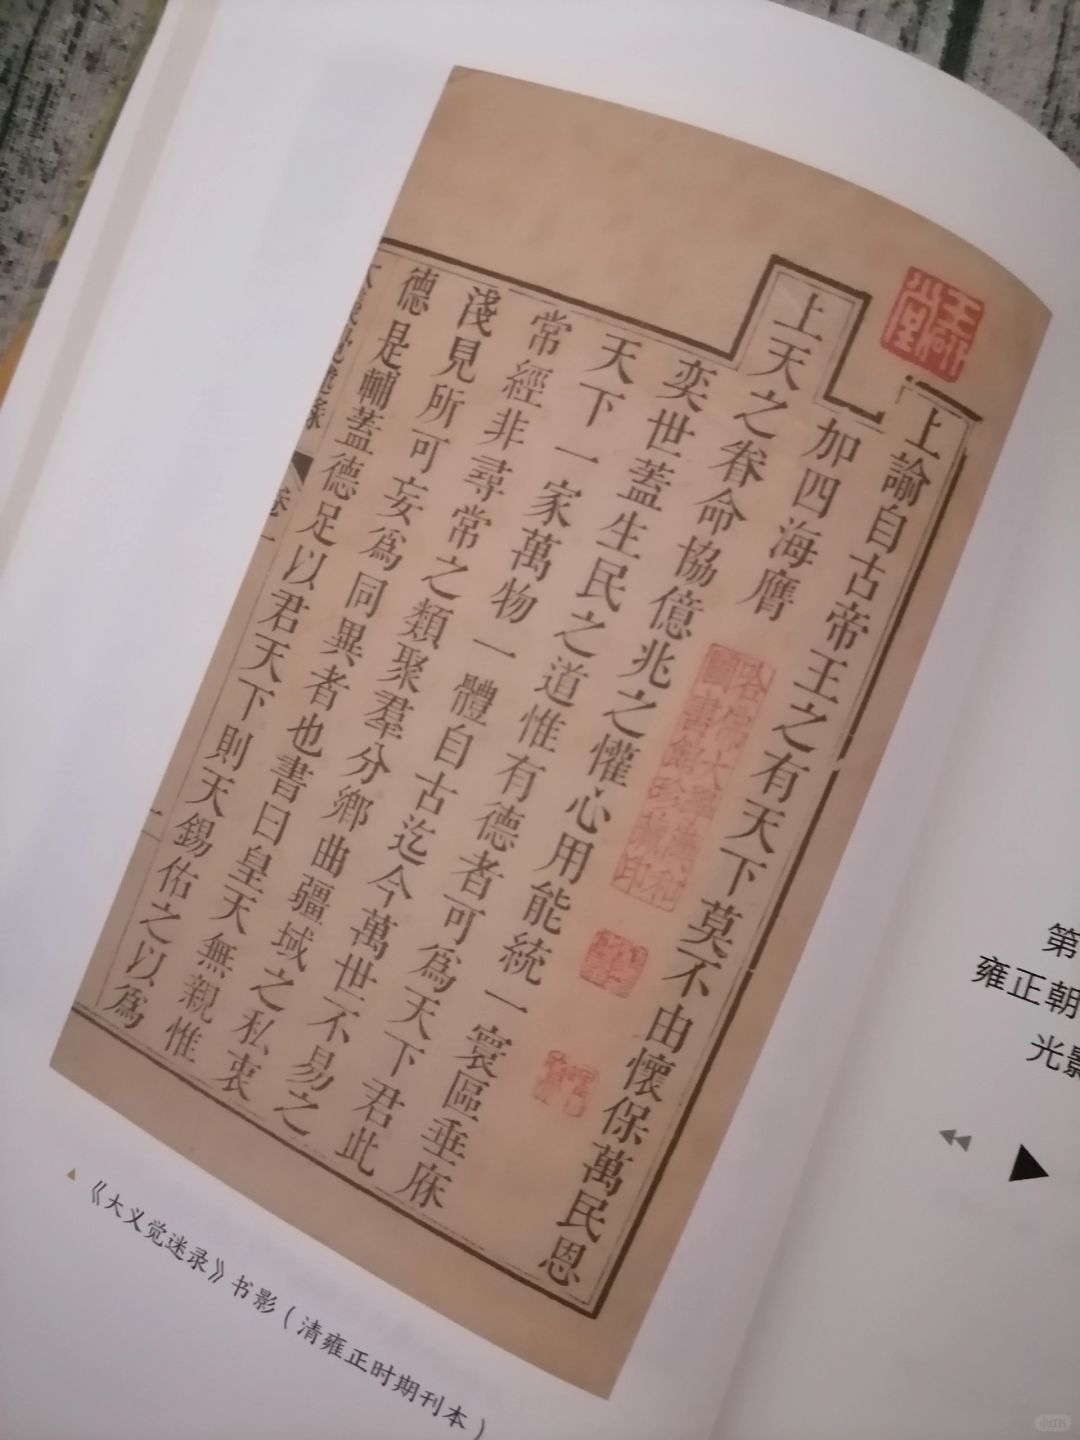 上諭自古帝王之有天下莫不由懷保萬民恩
加四海膺
上天之眷命協億兆之懽心用能統一寰區垂庥
奕世蓋生民之道惟有德者可爲天下君此
天下一家萬物一體自古迄今萬世不易之
常經非尋常之類聚羣分鄉曲疆域之私衷
淺見所可妄爲同異者也書曰皇天無親惟
德是輔蓋德足以君天下則天錫佑之以爲
大義覺迷錄 卷一 一
哈佛大學漢和
圖書館珍藏印
《大义觉迷录》书影（清雍正时期刊本）
第
雍正朝
光影
小红书